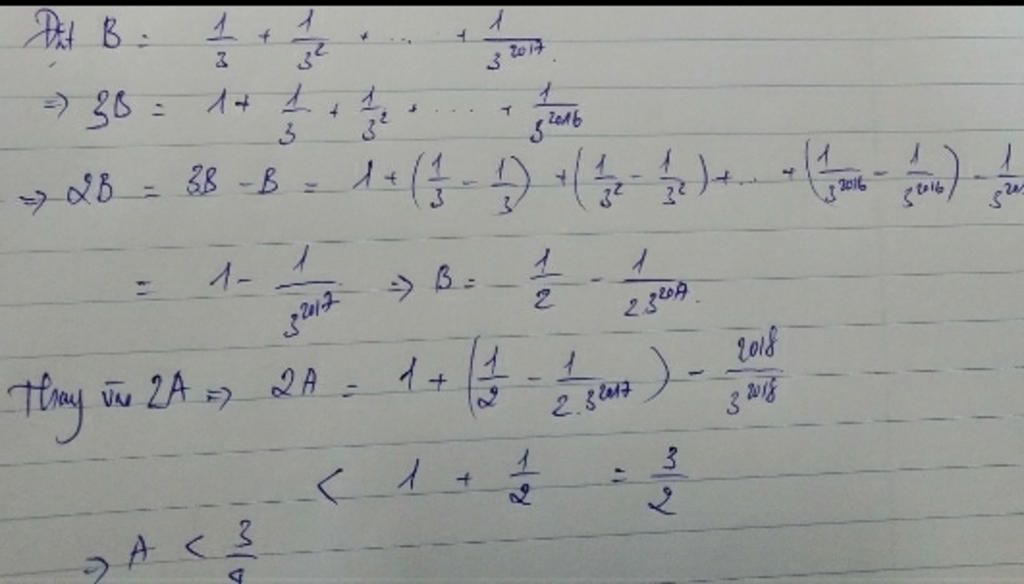 Đặt B = 1/3 + 1/3² + ... + 1/3²⁰¹⁷.
=> 3B = 1 + 1/3 + 1/3² + .... + 1/3²⁰¹⁶
=> 2B = 3B - B = 1 + (1/3 - 1/3) + (1/3² - 1/3²) + ... + (1/3²⁰¹⁶ - 1/3²⁰¹⁶) - 1/
= 1 - 1/3²⁰¹⁷ => B = 1/2 - 1/2.3²⁰¹⁷.
Thay vào 2A => 2A = 1 + (1/2 - 1/2.3²⁰¹⁷) - 2018/3²⁰¹⁸
< 1 + 1/2 = 3/2
=> A < 3/